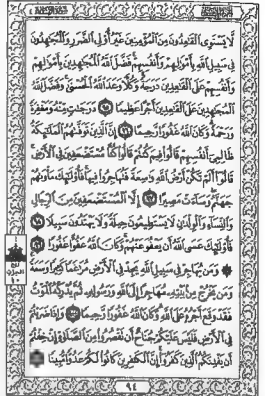 لَّا يَسْتَوِى الْقَٰعِدُونَ مِنَ الْمُؤْمِنِينَ غَيْرُ أُولِى الضَّرَرِ وَالْمُجَٰهِدُونَ
فِى سَبِيلِ اللَّهِ بِأَمْوَٰلِهِمْ وَأَنفُسِهِمْ فَضَّلَ اللَّهُ الْمُجَٰهِدِينَ بِأَمْوَٰلِهِمْ
وَأَنفُسِهِمْ عَلَى الْقَٰعِدِينَ دَرَجَةً وَكُلًّا وَعَدَ اللَّهُ الْحُسْنَىٰ وَفَضَّلَ اللَّهُ
الْمُجَٰهِدِينَ عَلَى الْقَٰعِدِينَ أَجْرًا عَظِيمًا ٩٥ دَرَجَٰتٍ مِّنْهُ وَمَغْفِرَةً
وَرَحْمَةً وَكَانَ اللَّهُ غَفُورًا رَّحِيمًا ٩٦ إِنَّ الَّذِينَ تَوَفَّىٰهُمُ الْمَلَٰئِكَةُ
ظَالِمِى أَنفُسِهِمْ قَالُوا فِيمَ كُنتُمْ قَالُوا كُنَّا مُسْتَضْعَفِينَ فِى الْأَرْضِ
قَالُوا أَلَمْ تَكُنْ أَرْضُ اللَّهِ وَٰسِعَةً فَتُهَاجِرُوا فِيهَا فَأُولَٰئِكَ مَأْوَىٰهُمْ
جَهَنَّمُ وَسَاءَتْ مَصِيرًا ٩٧ إِلَّا الْمُسْتَضْعَفِينَ مِنَ الرِّجَالِ
وَالنِّسَاءِ وَالْوِلْدَٰنِ لَا يَسْتَطِيعُونَ حِيلَةً وَلَا يَهْتَدُونَ سَبِيلًا ٩٨
فَأُولَٰئِكَ عَسَى اللَّهُ أَن يَعْفُوَ عَنْهُمْ وَكَانَ اللَّهُ عَفُوًّا غَفُورًا ٩٩
۞ وَمَن يُهَاجِرْ فِى سَبِيلِ اللَّهِ يَجِدْ فِى الْأَرْضِ مُرَٰغَمًا كَثِيرًا وَسَعَةً
وَمَن يَخْرُجْ مِن بَيْتِهِ مُهَاجِرًا إِلَى اللَّهِ وَرَسُولِهِ ثُمَّ يُدْرِكْهُ الْمَوْتُ
فَقَدْ وَقَعَ أَجْرُهُ عَلَى اللَّهِ وَكَانَ اللَّهُ غَفُورًا رَّحِيمًا ١٠٠ وَإِذَا ضَرَبْتُمْ
فِى الْأَرْضِ فَلَيْسَ عَلَيْكُمْ جُنَاحٌ أَن تَقْصُرُوا مِنَ الصَّلَوٰةِ إِنْ خِفْتُمْ
أَن يَفْتِنَكُمُ الَّذِينَ كَفَرُوا إِنَّ الْكَٰفِرِينَ كَانُوا لَكُمْ عَدُوًّا مُّبِينًا
٩٤